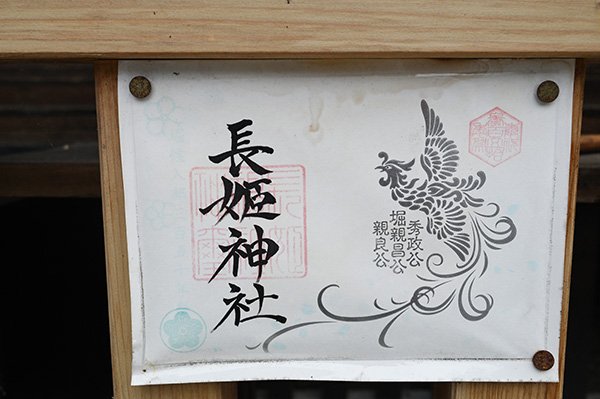 長姫神社
秀政公
堀親昌公
親良公